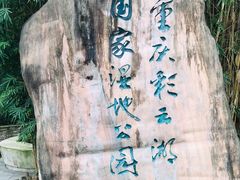 重庆彩云湖
国家湿地公园